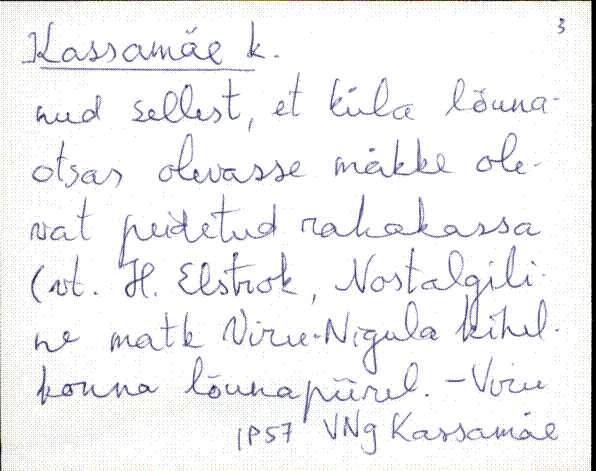 3
Kassamäe k.
nud sellest, et küla lõuna-
otsas olevasse mäkke ole-
vat peidetud rahakassa
(vt. H. Elstrok, Nostalgili-
ne matk Viru-Nigula kihel-
konna lõunapiirel. - Viru
IPS7 VNg Kassamäe